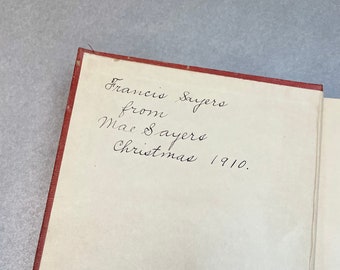 Francis Sayers
from
Mae Sayers
Christmas 1910.